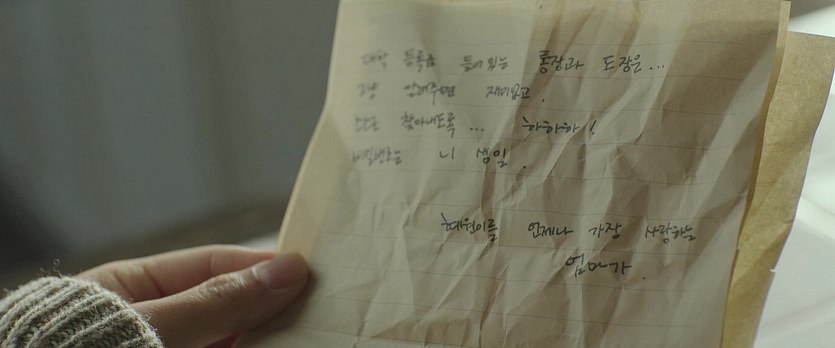 대학 등록금 들어있는 통장과 도장은...
그냥 알려주면 재미없고.
찾아내도록... 하하하!
비밀번호는 니 생일.
혜원이를 언제나 가장 사랑하는
엄마가.